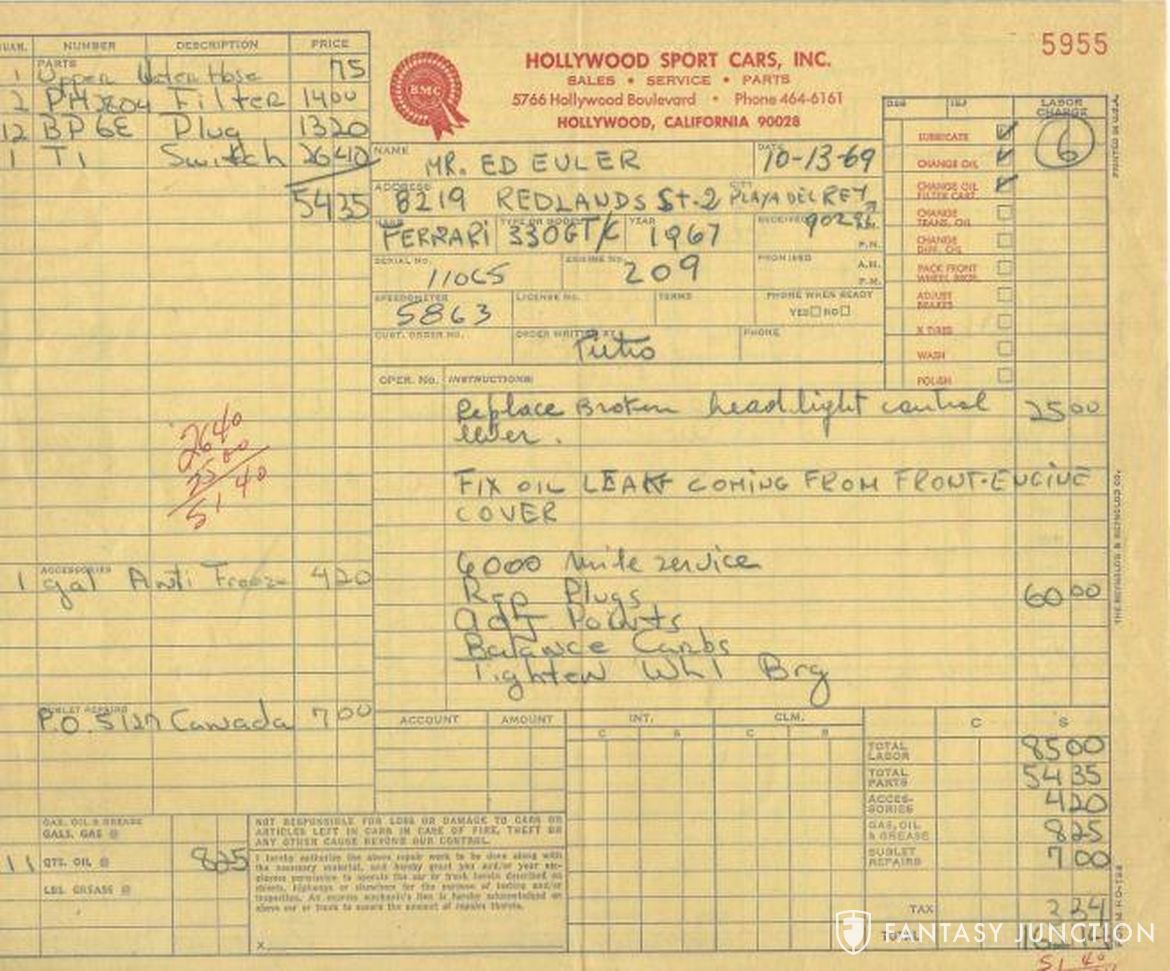 5955
HOLLYWOOD SPORT CARS, INC.
SALES • SERVICE • PARTS
5766 Hollywood Boulevard • Phone 464-6161
HOLLYWOOD, CALIFORNIA 90028
BMC
NUMBER DESCRIPTION PRICE
PARTS
1 Upper Water Hose 75
2 PH2804 Filter 1400
12 BP6E Plug 1320
1 T1 Switch 2640
5435
2640
2500
5140
ACCESSORIES
1 gal Anti Freeze 420
SUBLET REPAIRS
P.O. Canada 700
GAS, OIL & GREASE
GALS. GAS @
11 QTS. OIL @ 825
LBS. GREASE @
NAME MR. ED EULER DATE 10-13-69
ADDRESS 8219 REDLANDS St. 2 CITY PLAYA DEL REY
MAKE FERRARI TYPE OR MODEL 330GT/C YEAR 1967 RECEIVED A.M.
P.M.
SERIAL NO. 11065 ENGINE NO. 209 PROMISED A.M.
P.M.
SPEEDOMETER 5863 LICENSE NO. TERMS PHONE WHEN READY
YES NO
CUST. ORDER NO. ORDER WRITTEN BY PHONE
LABOR CHARGE
LUBRICATE 6
CHANGE OIL
CHANGE OIL FILTER CART.
CHANGE TRANS. OIL
CHANGE DIFF. OIL
PACK FRONT WHEEL BRGS.
ADJUST BRAKES
X TIRES
WASH
POLISH
OPER. No. INSTRUCTIONS:
Replace Broken headlight control 2500
lever.
FIX OIL LEAK COMING FROM FRONT-ENGINE
COVER
6000 mile service
Rep Plugs 6000
adj Points
Balance Carbs
Tighten Whl Brg
ACCOUNT AMOUNT INT. CLM. C S
C S C S
TOTAL LABOR 8500
TOTAL PARTS 5435
ACCESSORIES 420
GAS, OIL & GREASE 825
SUBLET REPAIRS 700
TAX 234
TOTAL
51 40
NOT RESPONSIBLE FOR LOSS OR DAMAGE TO CARS OR
ARTICLES LEFT IN CARS IN CASE OF FIRE, THEFT OR
ANY OTHER CAUSE BEYOND OUR CONTROL.
I hereby authorize the above repair work to be done along with
the necessary material, and hereby grant you and/or your em-
ployees permission to operate the car or truck herein described on
streets, highways or elsewhere for the purpose of testing and/or
inspection. An express mechanic's lien is hereby acknowledged on
above car or truck to secure the amount of repairs thereto.
X
THE REYNOLDS & REYNOLDS CO.
PRINTED IN U.S.A.
FANTASY JUNCTION